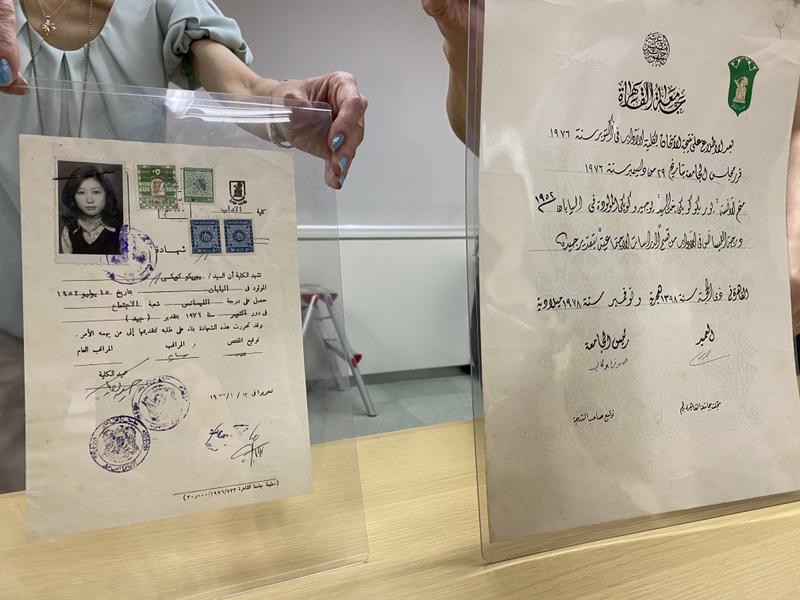 كلية الآداب
شهادة
تشهد الكلية أن السيد / يوريكو كويكى
المولود فى اليابان بتاريخ ١٥ يوليو ١٩٥٢
حصل على درجة الليسانس شعبة الاجتماع
فى دور أكتوبر سنة ١٩٧٦ بتقدير (جيد)
وقد تحررت هذه الشهادة بناء على طلبه لتقديمها إلى من يهمه الأمر.
توقيع المختص المراقب المراقب العام
عميد الكلية
تحريرا فى
(مطبعة جامعة القاهرة ٢٠٠٠٠/١٩٧٦/٧٣٣)
جامعة القاهرة
بعد الاطلاع على نتيجة الامتحان لكلية الآداب فى أكتوبر سنة ١٩٧٦
قرر مجلس الجامعة بتاريخ ٢٩ من ديسمبر سنة ١٩٧٦
منح الآنسة / يوريكو كويكى المولودة فى اليابان ١٩٥٢
درجة الليسانس فى الآداب من قسم الدراسات الاجتماعية بتقدير جيد
القاهرة فى ذى الحجة سنة ١٣٩٨ هجرية و نوفمبر سنة ١٩٧٨ ميلادية
العميد
رئيس الجامعة
توقيع صاحب الدرجة